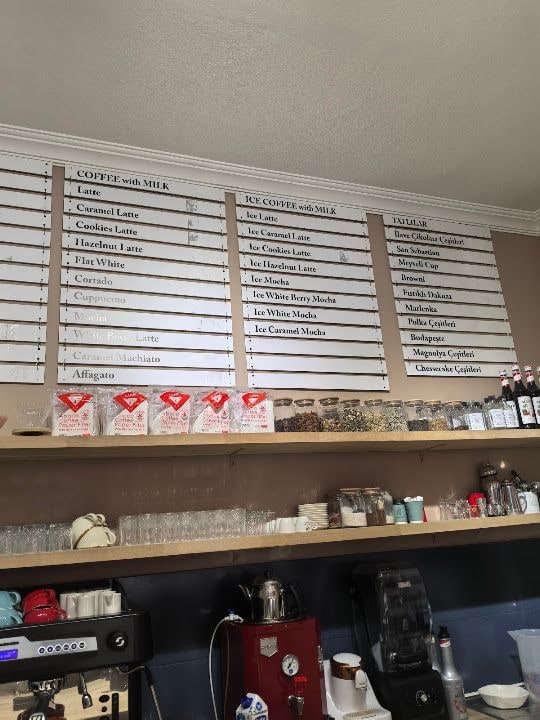 COFFEE with MILK
Latte
Caramel Latte
Cookies Latte
Hazelnut Latte
Flat White
Cortado
Cuppucino
Mocha
White Berry Latte
Caramel Machiato
Affagato
ICE COFFEE with MILK
Ice Latte
Ice Caramel Latte
Ice Cookies Latte
Ice Hazelnut Latte
Ice Mocha
Ice White Berry Mocha
Ice White Mocha
Ice Caramel Mocha
TATLILAR
İlave Çikolata Çeşitleri
San Sebastian
Meyveli Cup
Browni
Fıstıklı Dakuaz
Marlenka
Polka Çeşitleri
Budapeşte
Magnolya Çeşitleri
Cheesecake Çeşitleri
Coffee
Paper Filter
Coffee
Paper Filter
Coffee
Paper Filter
Coffee
Paper Filter
Coffee
Paper Filter